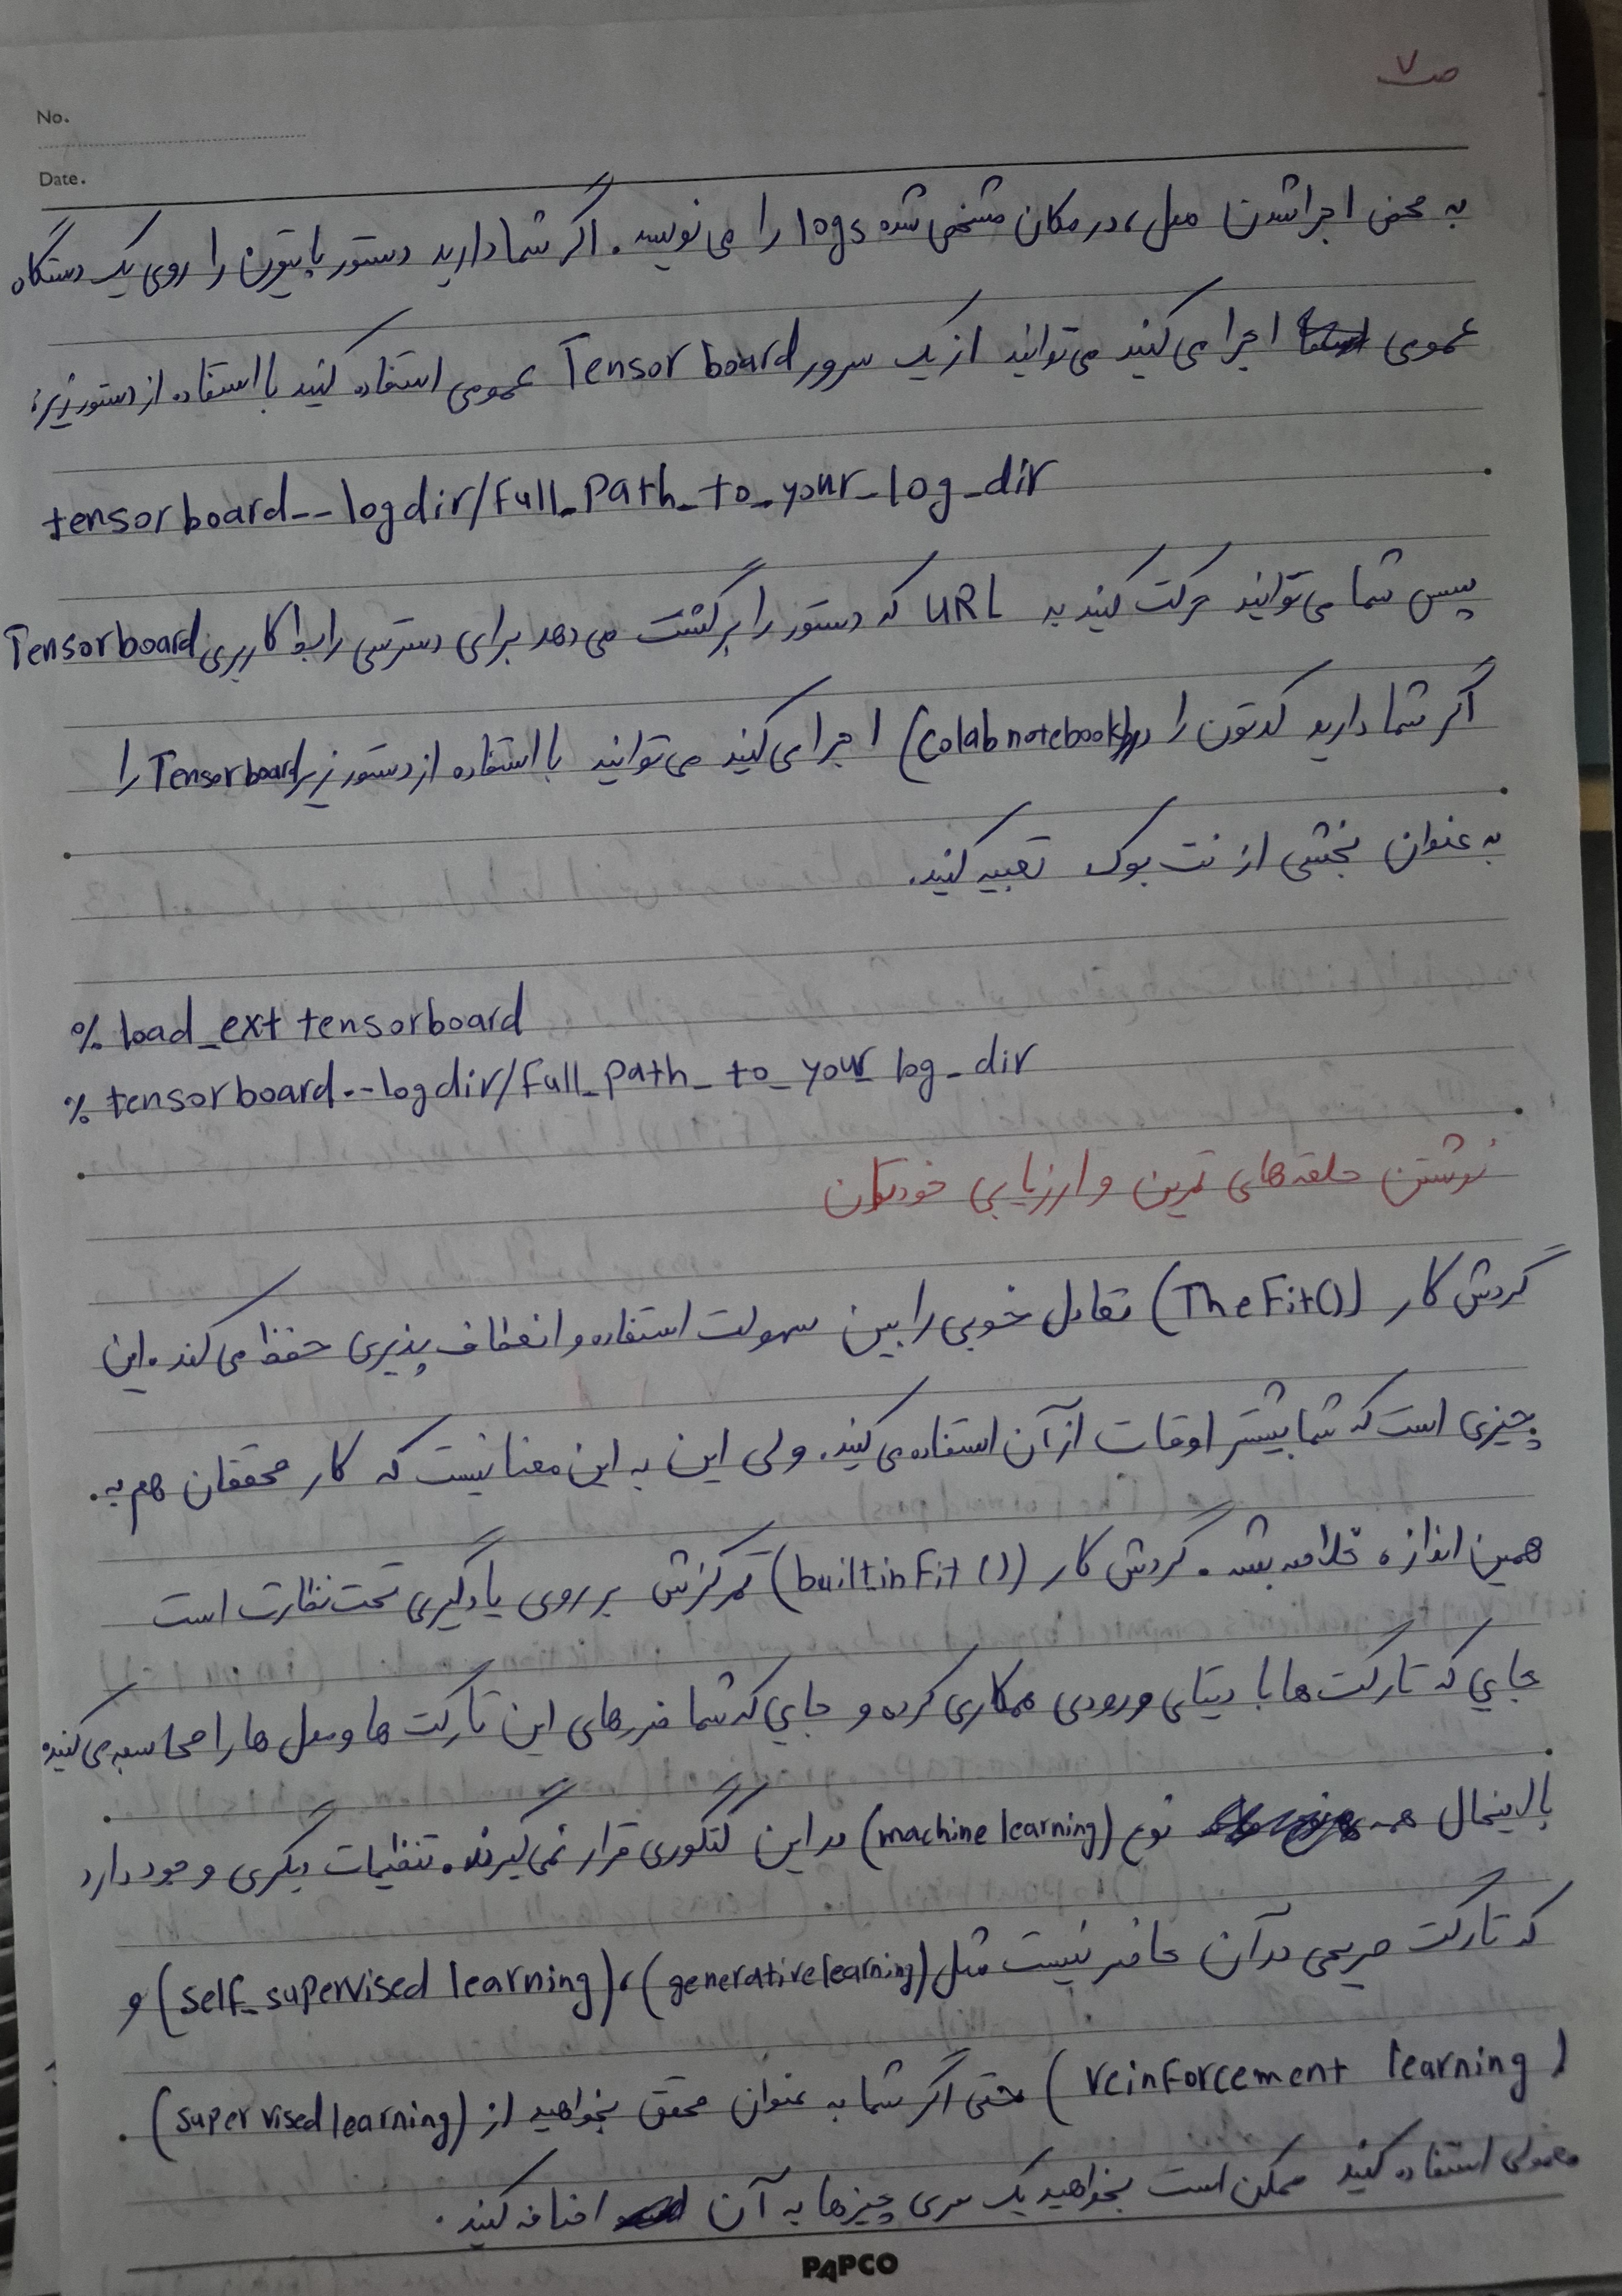 ص ۷
No.
Date.
به محض اجرا شدن مدل، در مکان مشخص شده logs را می نویسد. اگر شما دارید دستور پایتون را روی یک دستگاه
عمومی اجرا می کنید می توانید از یک سرور Tensor board عمومی استفاده کنید با استفاده از دستور زیر:
tensorboard -- logdir/full_path_to_your_log_dir
سپس شما می توانید حرکت کنید به URL که دستور را برگشت می دهد برای دسترسی رابط کاربری Tensorboard
اگر شما دارید کدتون را در (colab notebook) اجرا می کنید می توانید با استفاده از دستور زیر Tensorboard را
به عنوان بخشی از نت بوک تعبیه کنید.
% load_ext tensorboard
% tensorboard --logdir/full_path_to_your_log_dir
نوشتن حلقه های تمرین و ارزیابی خودتان
گردش کار (The Fit()) تعادل خوبی را بین سهولت استفاده و انعطاف پذیری حفظ می کند. این
چیزی است که شما بیشتر اوقات از آن استفاده می کنید. ولی این به این معنا نیست که کار محققان هم به
همین اندازه خلاصه بشه. گردش کار (built_in Fit ()) تمرکزش بر روی یادگیری تحت نظارت است
جایی که تارگت ها با دیتای ورودی همکاری کرده و جایی که شما ضررهای این تارگت ها و مدل ها را محاسبه می کنید
بااینحال همه نوع (machine learning) در این کتگوری قرار نمی گیرند. تنظیمات دیگری وجود دارد
که تارگت صریحی در آن حاضر نیست مثل (generative learning)، (self_supervised learning) و
(reinforcement learning) حتی اگر شما به عنوان محقق بخواهید از (supervised learning)
معمولی استفاده کنید ممکن است بخواهید یک سری چیزها به آن اضافه کنید.
PAPCO